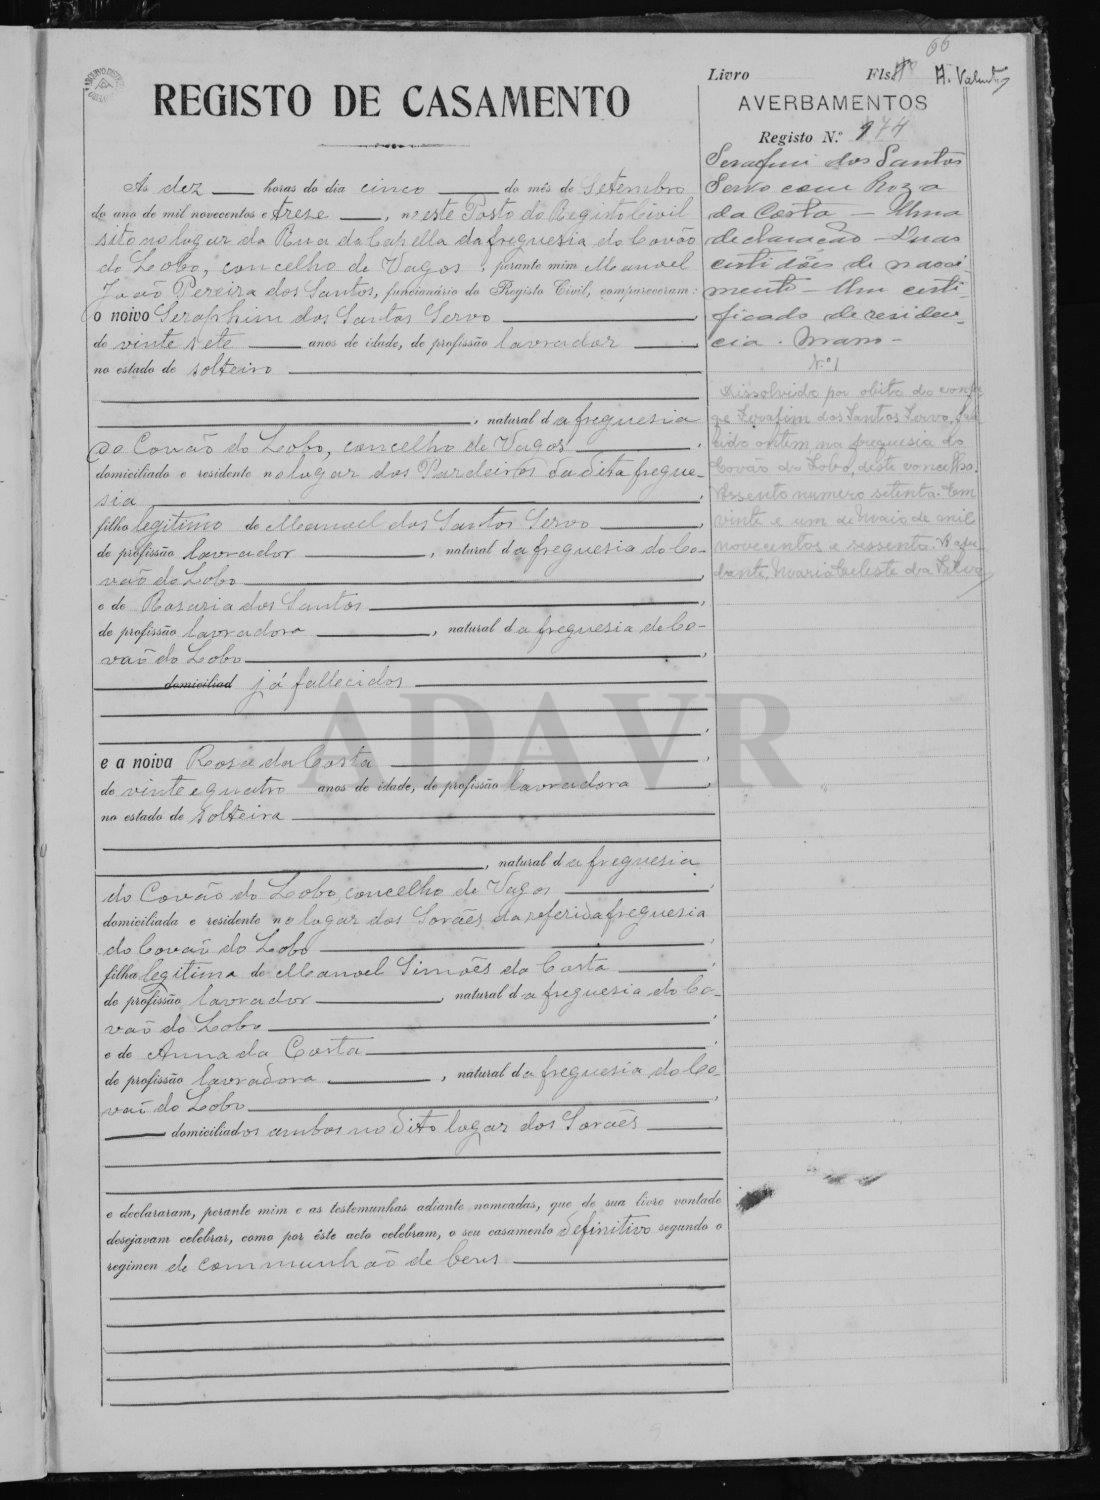 66
Livro Fls. A. Valent
REGISTO DE CASAMENTO
AVERBAMENTOS
Registo N.º 144
As dez horas do dia cinco do mês de Setembro
do ano de mil novecentos e treze, neste Posto do Registo Civil
sito no logar da Rua da Capella da freguesia do Covão
do Lobo, concelho de Vagos, perante mim Manoel
João Pereira dos Santos, funcionário do Registo Civil, compareceram:
o noivo Seraphim dos Santos Servo
de vinte sete anos de idade, de profissão lavrador
no estado de solteiro
, natural da freguesia
do Covão do Lobo, concelho de Vagos
domiciliado e residente no logar dos Pardeiros da dita fregue-
sia
filho legitimo de Manoel dos Santos Servo
de profissão lavrador, natural da freguesia do Co-
vão do Lobo
e de Rosaria dos Santos
de profissão lavradora, natural da freguesia do Co-
vão do Lobo
domiciliad já fallecidos
e a noiva Rosa da Costa
de vinte e quatro anos de idade, de profissão lavradora
no estado de solteira
, natural da freguesia
do Covão do Lobo, concelho de Vagos
domiciliada e residente no logar dos Sorães da referida freguesia
do Covão do Lobo
filha legitima de Manoel Simões da Costa
de profissão lavrador, natural da freguesia do Co-
vão do Lobo
e de Anna da Costa
de profissão lavradora, natural da freguesia do Co-
vão do Lobo
domiciliados ambos no dito logar dos Sorães
e declararam, perante mim e as testemunhas adiante nomeadas, que de sua livre vontade
desejavam celebrar, como por êste acto celebram, o seu casamento definitivo segundo o
regimen de communhão de bens
Serafim dos Santos
Servo com Roza
da Costa — Uma
declaração — Duas
certidões de nasci-
mento — Um certi-
ficado de residen-
cia.
N.º 1
Dissolvido por obito do conju-
ge Serafim dos Santos Servo, fale-
cido ontem na freguesia do
Covão do Lobo, deste concelho.
Assento numero setenta. Em
vinte e um de Maio de mil
novecentos e sessenta. A aju-
dante, Maria Celeste da Silva
ADAVR